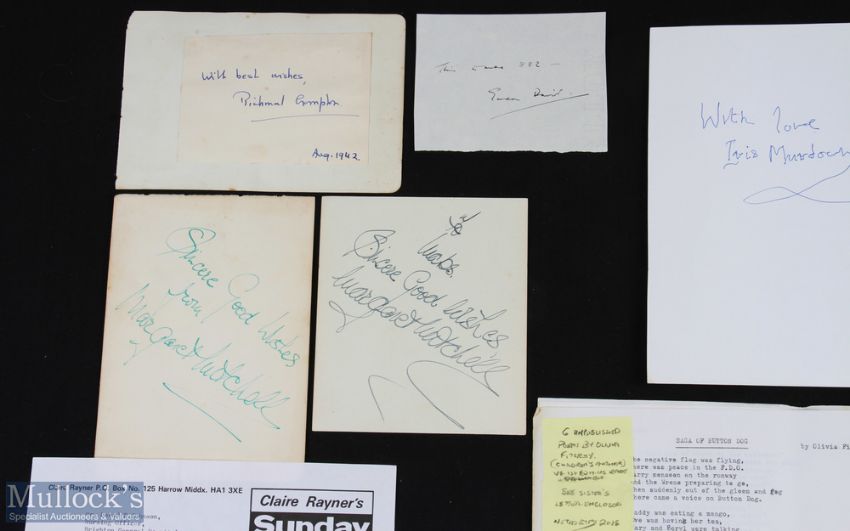 With best wishes,
Richmal Crompton
Aug. 1942
This
Sincere Good Wishes
from
Margaret Mitchell
To
Mabs.
Sincere Good Wishes
Margaret Mitchell
With love
Iris Murdoch
Claire Rayner P.O. Box No. 125 Harrow Middx. HA1 3XE
Claire Rayner's
Sunday
6 UNPUBLISHED
POEMS BY OLIVIA
(CHILDREN'S AUTHOR)
SEE SISTER'S
LETTER ENCLOSED
SAGA OF BUTTON DOG
by Olivia Fi
he negative flag was flying,
here was peace in the F.D.O.
arry sensson on the runway
nd the Wrens preparing to go,
hen suddenly out of the gleem and fog
here came a voice on Button Dog.
addy was eating a mango,
ve was boring her tea,
ary and Beryl were talking
Mullock's
Specialist Auctioneers & Valuers